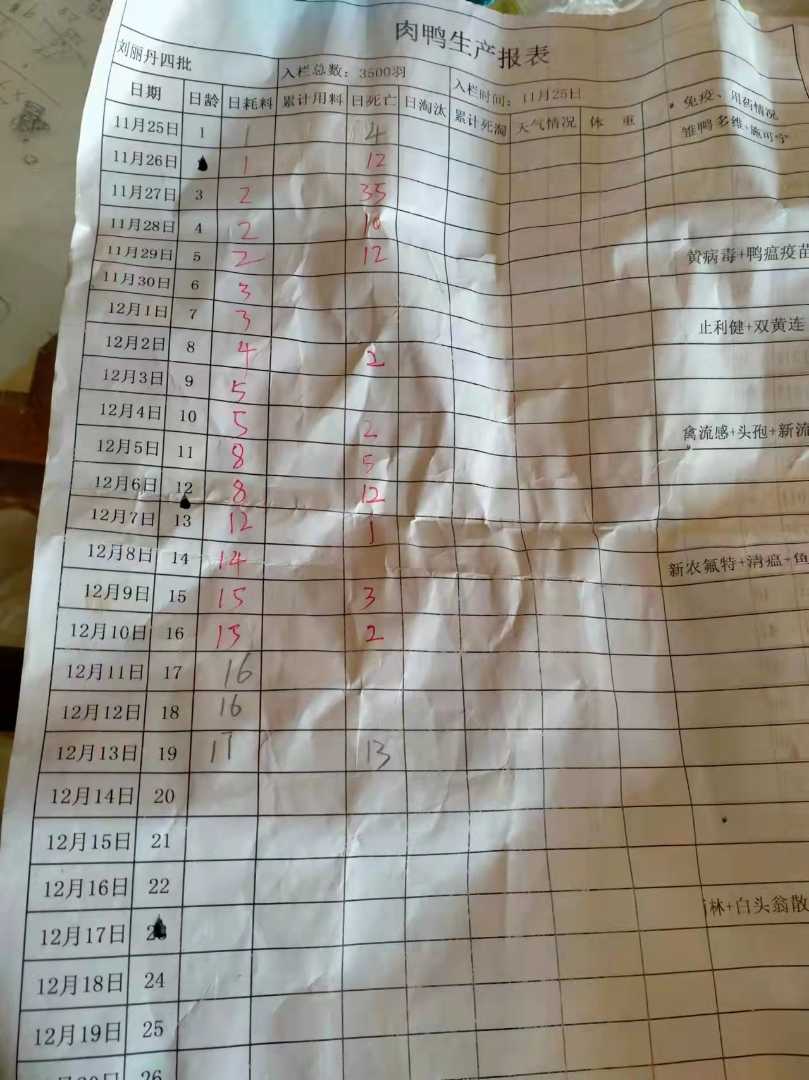 肉鸭生产报表
刘丽丹四批 入栏总数：3500羽 入栏时间：11月25日
日期 日龄 日耗料 累计用料 日死亡 日淘汰 累计死淘 天气情况 体 重 免疫、用药情况
11月25日 1 1 4 雏鸭多维+施可宁
11月26日 1 12
11月27日 3 2 35
11月28日 4 2 10
11月29日 5 2 12 黄病毒+鸭瘟疫苗
11月30日 6 3
12月1日 7 3 止利健+双黄连
12月2日 8 4 2
12月3日 9 5
12月4日 10 5 2 禽流感+头孢+新流
12月5日 11 8 5
12月6日 12 8 12
12月7日 13 12 1
12月8日 14 14 新农氟特+清瘟+鱼
12月9日 15 15 3
12月10日 16 15 2
12月11日 17 16
12月12日 18 16
12月13日 19 17 13
12月14日 20
12月15日 21
12月16日 22
12月17日 林+白头翁散
12月18日 24
12月19日 25
26